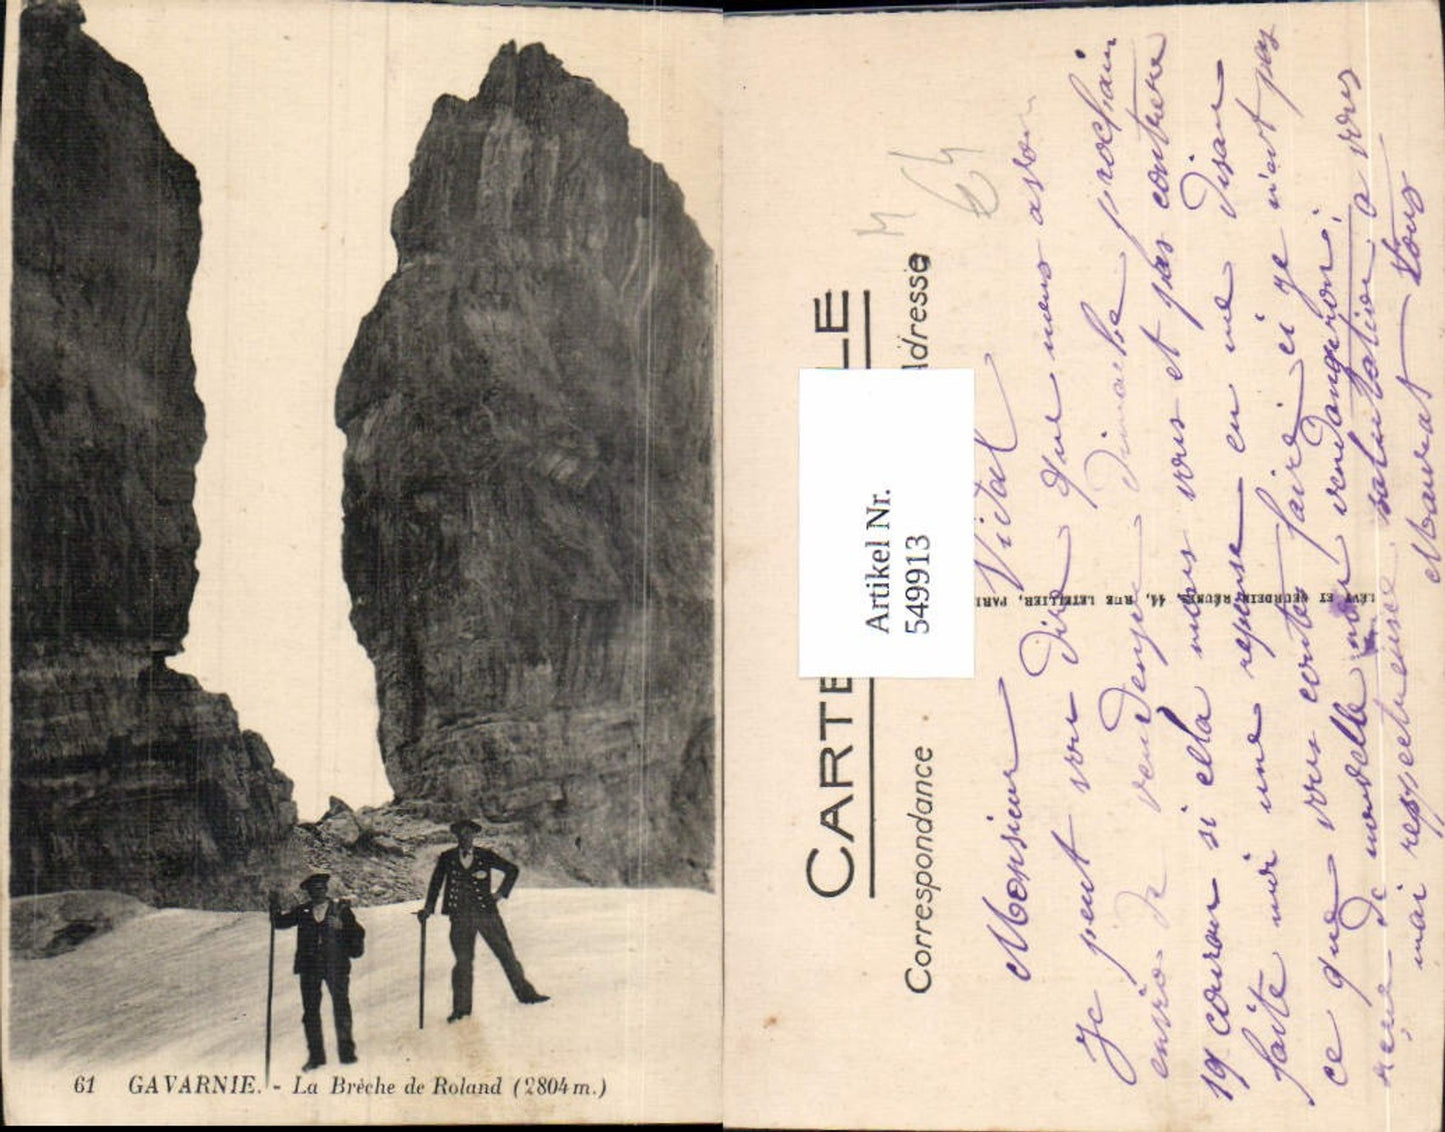 61 GAVARNIE. - La Brèche de Roland (2804 m.)
CARTE LE
Correspondance Adresse
M
64
Artikel Nr.
549913
LÉVY ET NEURDEIN RÉUNIS, 44, RUE LETELLIER, PARI
Monsieur Vidal
Je peut vou dire que nous avon
enviro de vendenjé Dimanche prochain
19 couran si ella nous vous et pas contrere
faite moi une reponse en me disan
ce que vous conter faire ci je n'eut pas
de nouvelle nou vendangeron;
mai respectueuse salutation a vous
Tous
Mauras